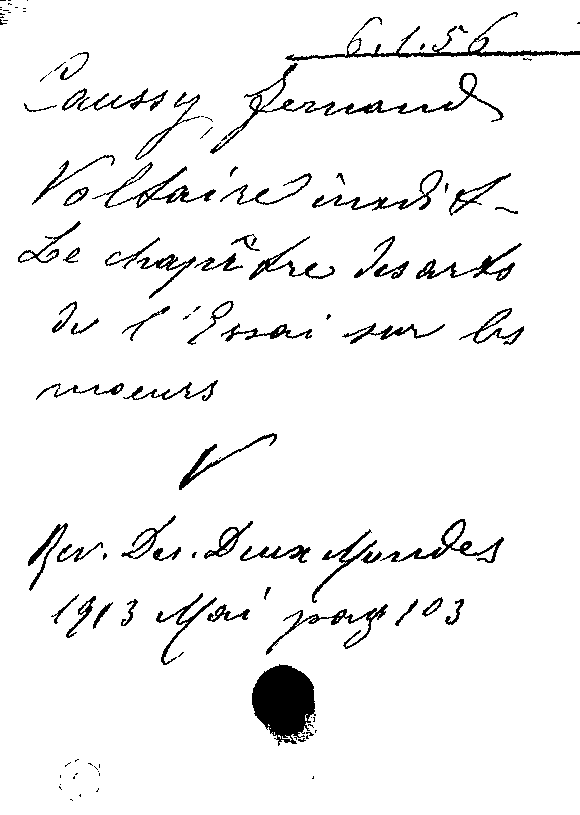 6.1.56
Caussy, Fernand
Voltaire inédit -
Le chapître des arts
de l'Essai sur les
moeurs
V
Rev. Des. Deux Mondes
1913 Mai pag 103